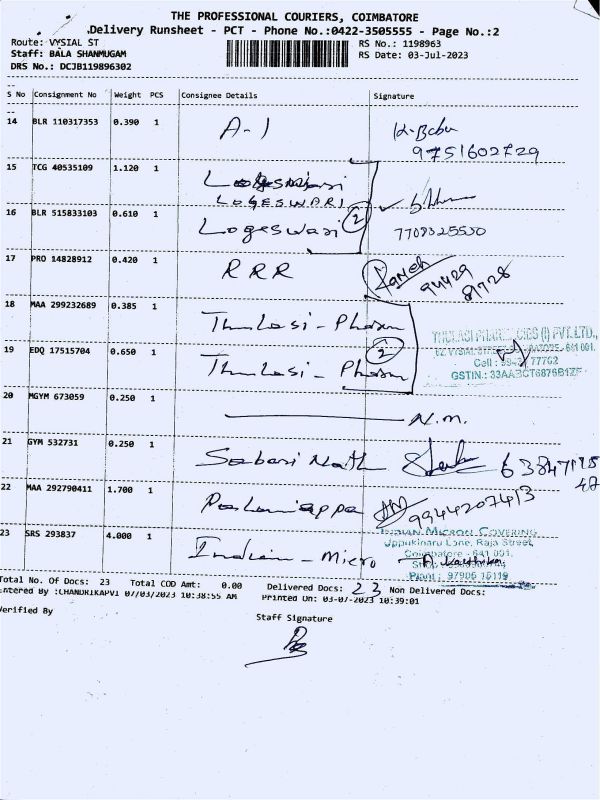 THE PROFESSIONAL COURIERS, COIMBATORE
Delivery Runsheet - PCT - Phone No.:0422-3505555 - Page No.:2
Route: VYSIAL ST
RS No.: 1198963
Staff: BALA SHANMUGAM
RS Date: 03-Jul-2023
DRS No.: DCJB119896302
S No Consignment No Weight PCS Consignee Details Signature
14 BLR 110317353 0.390 1 A-1 K. Babu
9751602729
15 TCG 40535109 1.120 1 Logeswari
LOGESWARI
16 BLR 515833103 0.610 1 Logeswari 2
7708325550
17 PRO 14828912 0.420 1 RRR Ramesh
94429
81728
18 MAA 299232689 0.385 1 Thulasi - Pharm
THULASI PVT.LTD.,
19 EDQ 17515704 0.650 1 Thulasi - Pharm 2
VYSIAL STREET 641 001.
Cell : 77762
GSTIN.: 33AABCT6876B1ZF
20 MGYM 673059 0.250 1 N.M.
21 GYM 532731 0.250 1 Sabari Nath 63847195
42
22 MAA 292790411 1.700 1 Palaniappa 9944207413
23 SRS 293837 4.000 1 Indian - Micro
INDIAN MICRON COVERING
Uppukinaru Lane, Raja Street,
Coimbatore - 641 001.
Plant : 97906 15119
Total No. Of Docs: 23 Total COD Amt: 0.00 Delivered Docs: 23 Non Delivered Docs:
Entered By :CHANDRIKAPVI 07/03/2023 10:38:55 AM Printed On: 03-07-2023 10:39:01
Verified By
Staff Signature